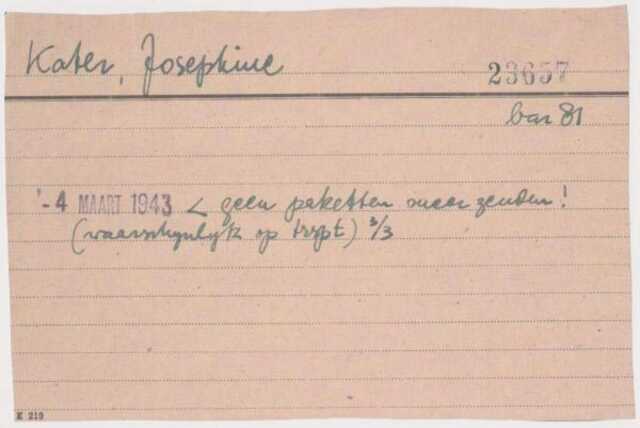 Kater, Josephine 23657
bar 81
- 4 MAART 1943 < geen paketten meer zenden!
(waarschynlyk op trspt) 3/3
K 219